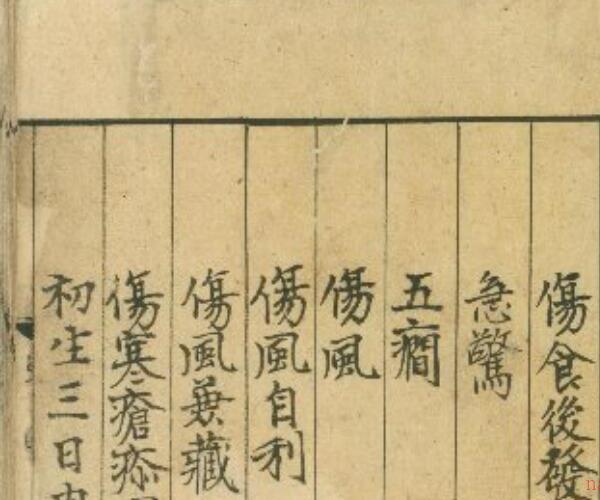 傷食後發
急驚
五癇
傷風
傷風自利
傷風兼藏
傷寒瘡疹
初生三日内